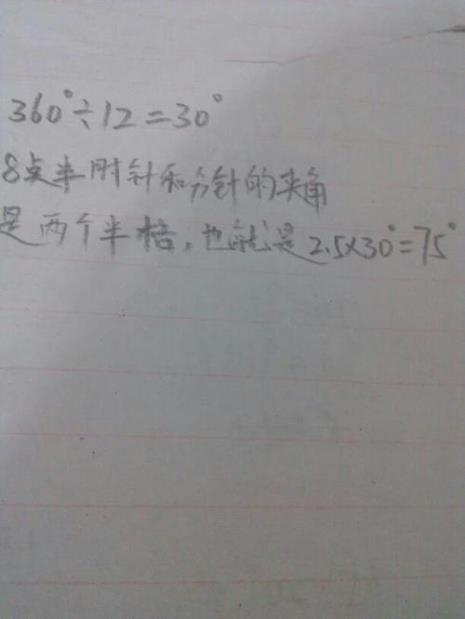 360°÷12=30°
8点半时针和分针的夹角
是两个半格,也就是2.5×30°=75°